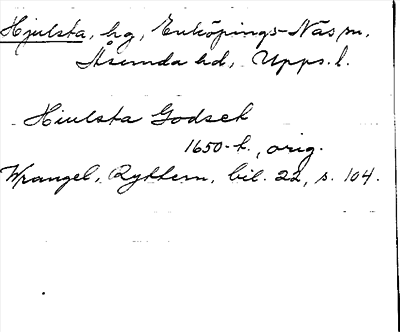 Hjulsta, hg, Enköpings-Näs sn,
Åsunda hd, Upps. l.
Hiulsta Godsek
1650-t., orig.
Wrangel, Ryttern, bil. 22, s. 104.